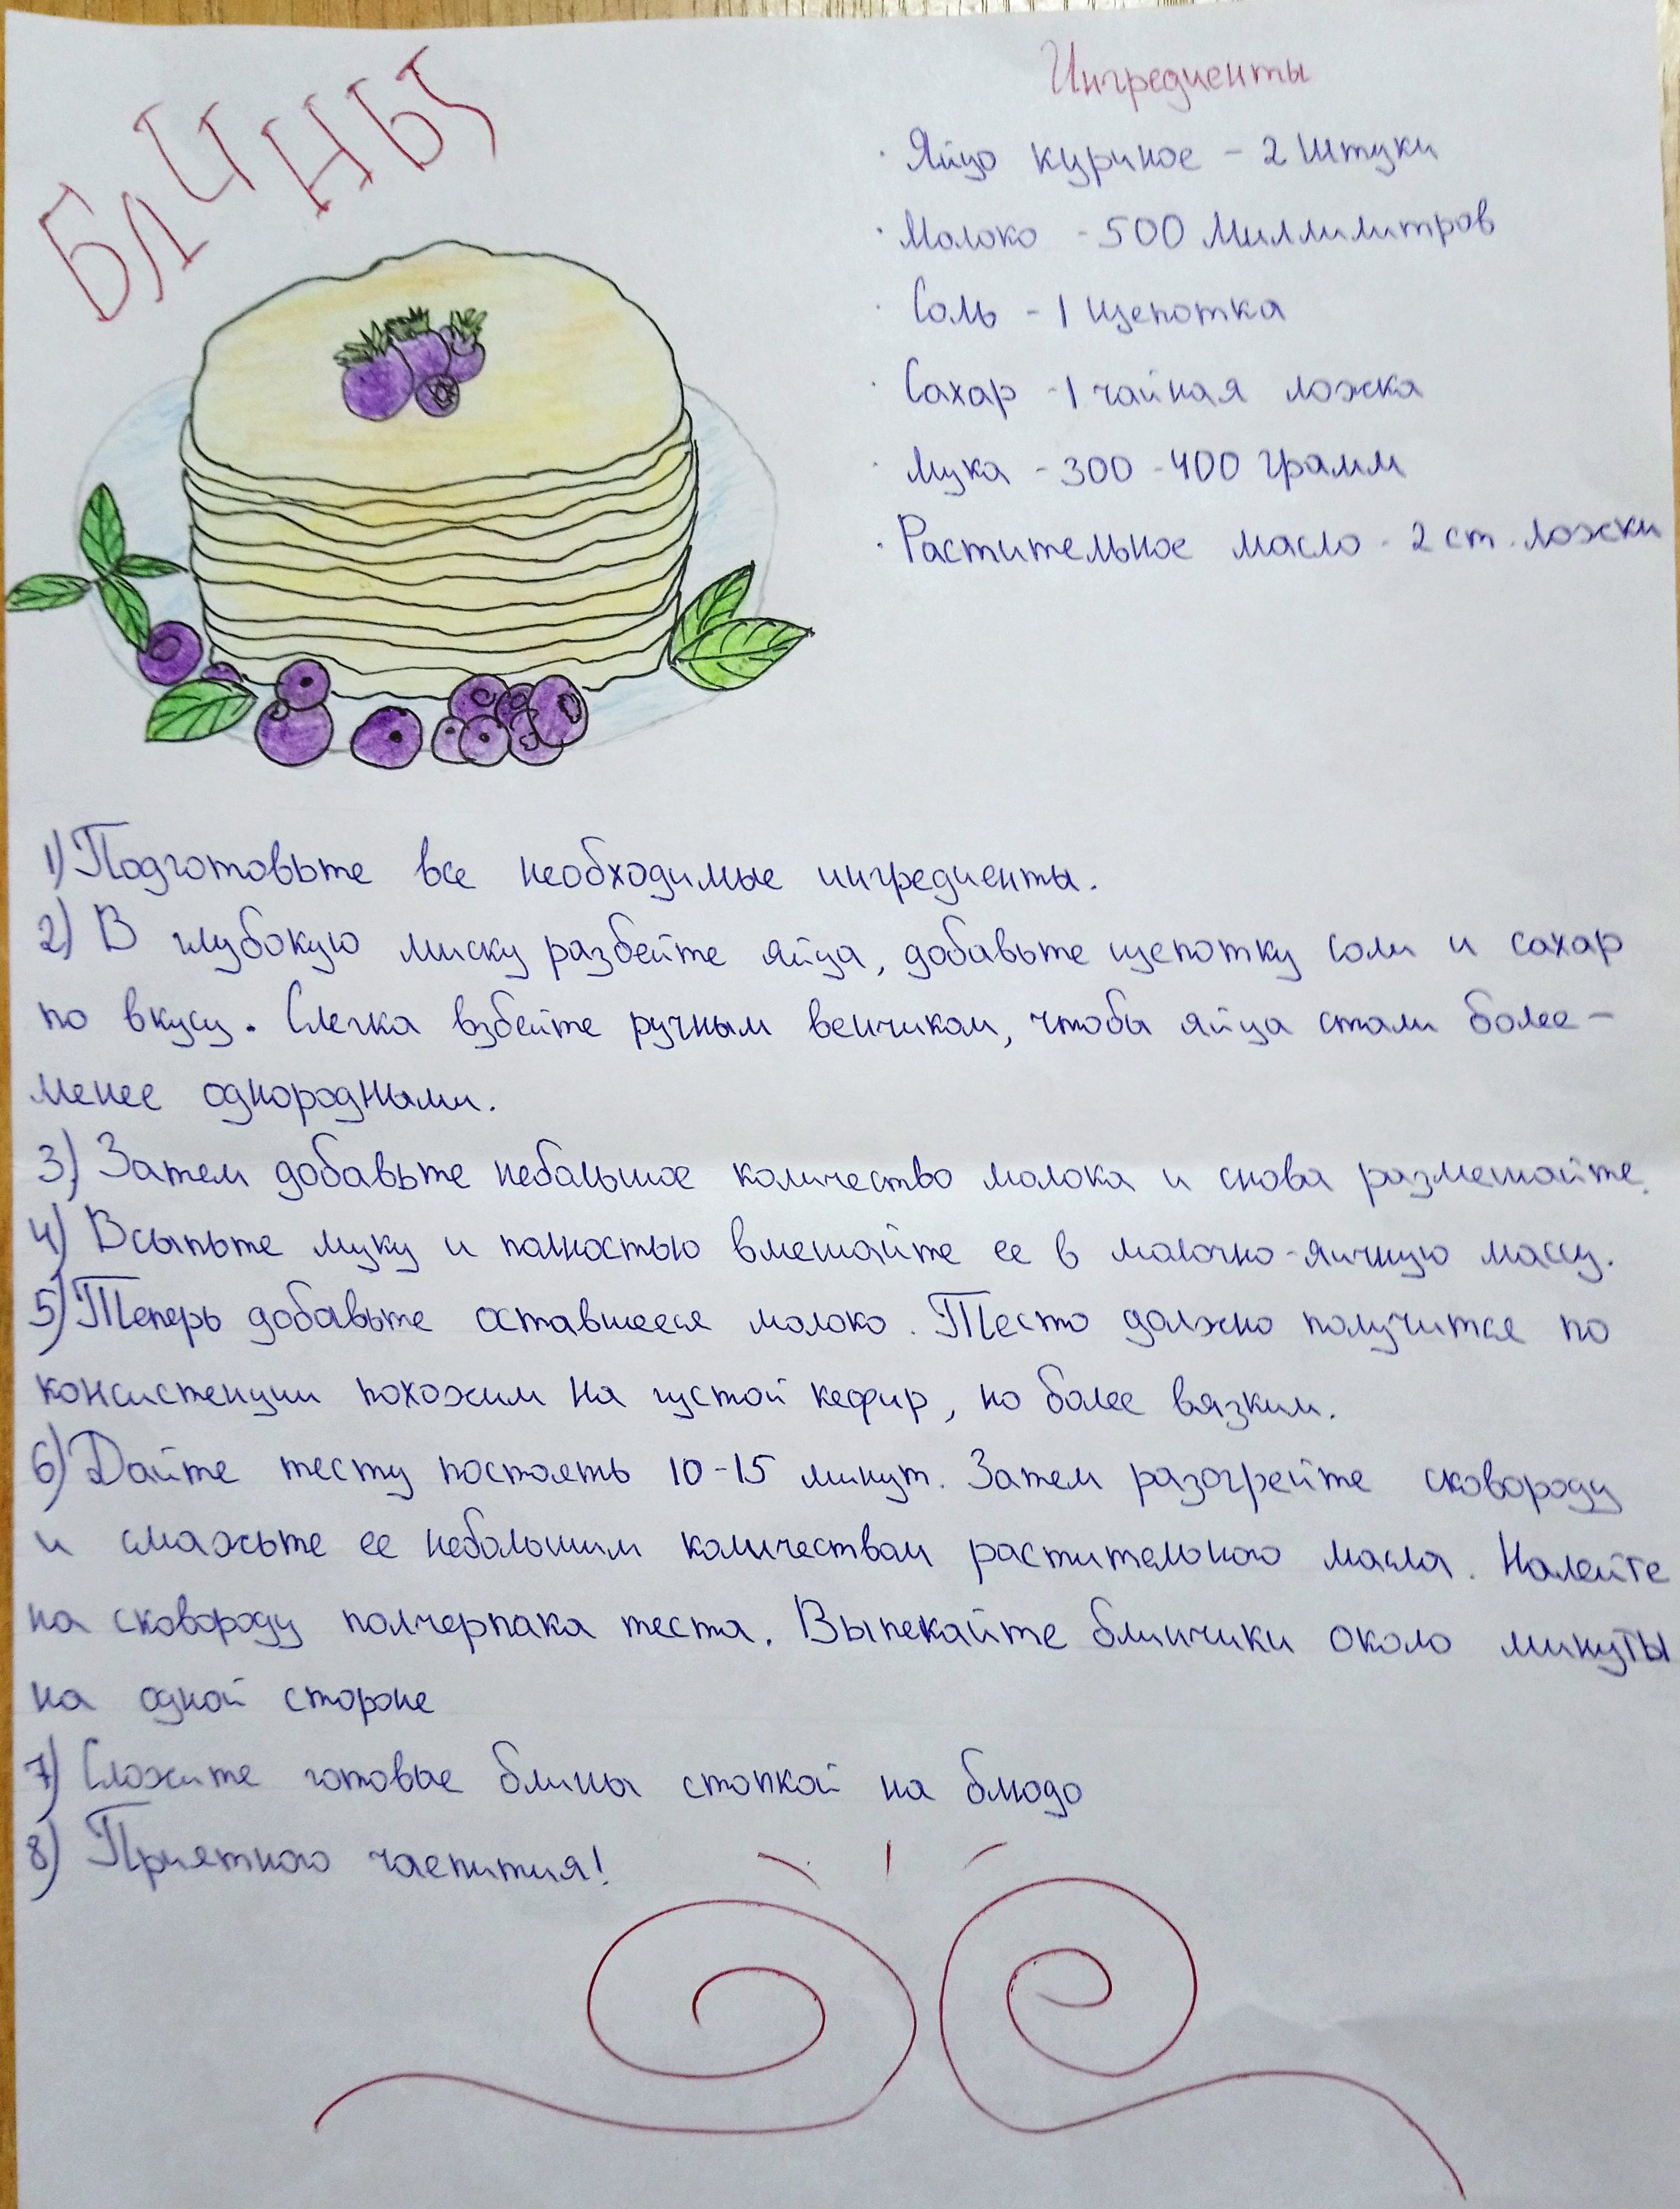 БЛИНЫ
Ингредиенты
· Яйцо куриное - 2 штуки
· Молоко - 500 Миллилитров
· Соль - 1 щепотка
· Сахар - 1 чайная ложка
· Мука - 300 - 400 грамм
· Растительное масло - 2 ст. ложки
1) Подготовьте все необходимые ингредиенты.
2) В глубокую миску разбейте яйца, добавьте щепотку соли и сахар
по вкусу. Слегка взбейте ручным венчиком, чтобы яйца стали более-
менее однородными.
3) Затем добавьте небольшое количество молока и снова размешайте.
4) Всыпьте муку и полностью вмешайте ее в молочно-яичную массу.
5) Теперь добавьте оставшееся молоко. Тесто должно получится по
консистенции похожим на густой кефир, но более вязким.
6) Дайте тесту постоять 10-15 минут. Затем разогрейте сковороду
и смажьте ее небольшим количеством растительного масла. Налейте
на сковороду полчерпака теста. Выпекайте блинчики около минуты
на одной стороне
7) Сложите готовые блины стопкой на блюдо
8) Приятного чаепития!